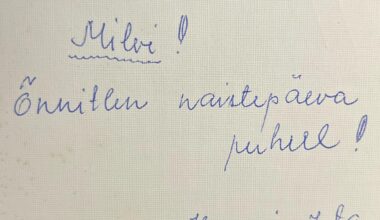 Milvi!
Õnnitlen naistepäeva
puhul!